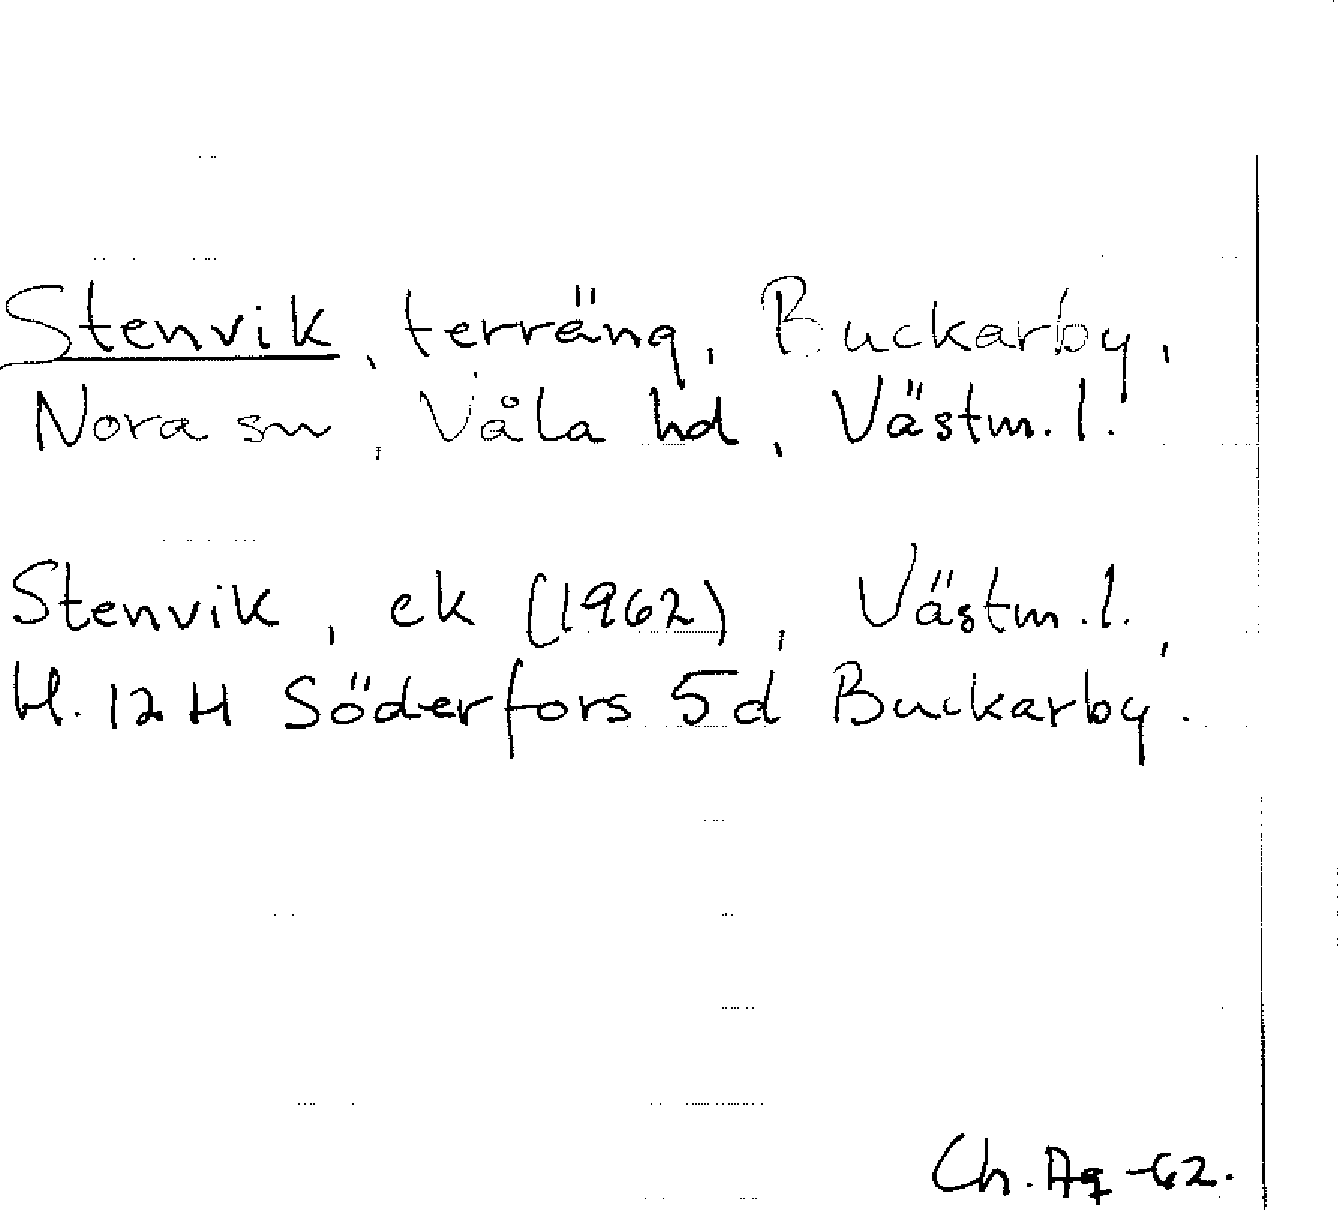 Stenvik, terräng, Buckarby,
Nora sn, Våla hd, Västm. l.
Stenvik, ek (1962), Västm. l.,
bl. 12 H Söderfors 5d Buckarby.
Ch. Ag -62.